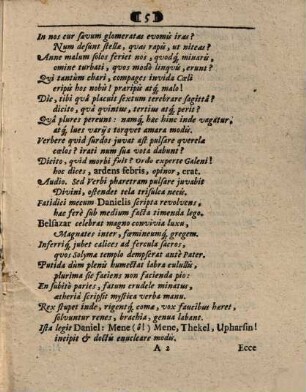 5
In nos cur sævum glomeratas evomis iras?
Num desunt stellæ, quas rapis, ut niteas?
Anne malum solos feriet nos, quodq́; minaris,
omine turbati, quos modò linquis, erunt?
Qui tantùm chari, compages invida Cœli
eripis hos nobis! præripis atq́; malo!
Dic, tibi quâ placuit sextum terebrare sagittâ?
dicito, quâ quintus, tertius atq́; peris?
Quâ plures pereunt: namq́; hac hinc inde vagatur,
atq́; lues varijs torquet amara modis.
Verbere quid surdos juvat ast pulsare querela
cœlos? irati num sua vota dabunt?
Dicito, quid morbi fuit? Urdo experte Galeni!
hoc dices, ardens febris, opinor, erat.
Audio. Sed Verbi pharetram pulsare juvabit
Divini, ostendet tela trisulca necê.
Fatidici mecum Danielis scripta revolvens,
hac ferè sub medium facta timenda lego.
Belsazar celebrat magno convivia luxu,
Magnates inter, fœmineumq́; gregem.
Inferriq́; jubet calices ad fercula sacros,
quos Solyma templo dempserat antè Pater.
Putida dùm plenis humectat labra culullis,
plurima sic faciens non facienda piò:
En subitò paries, fatum crudele minatus,
ætheriâ scripsit mystica verba manu.
Rex stupet inde, rigentq́; coma, vox faucibus hæret,
solvuntur renes, brachia, genua labant.
Ista legit Daniel: Mene (ô!) Mene, Thekel, Upharsin!
incipit & doctis enucleare modis.
A 2
Ecce